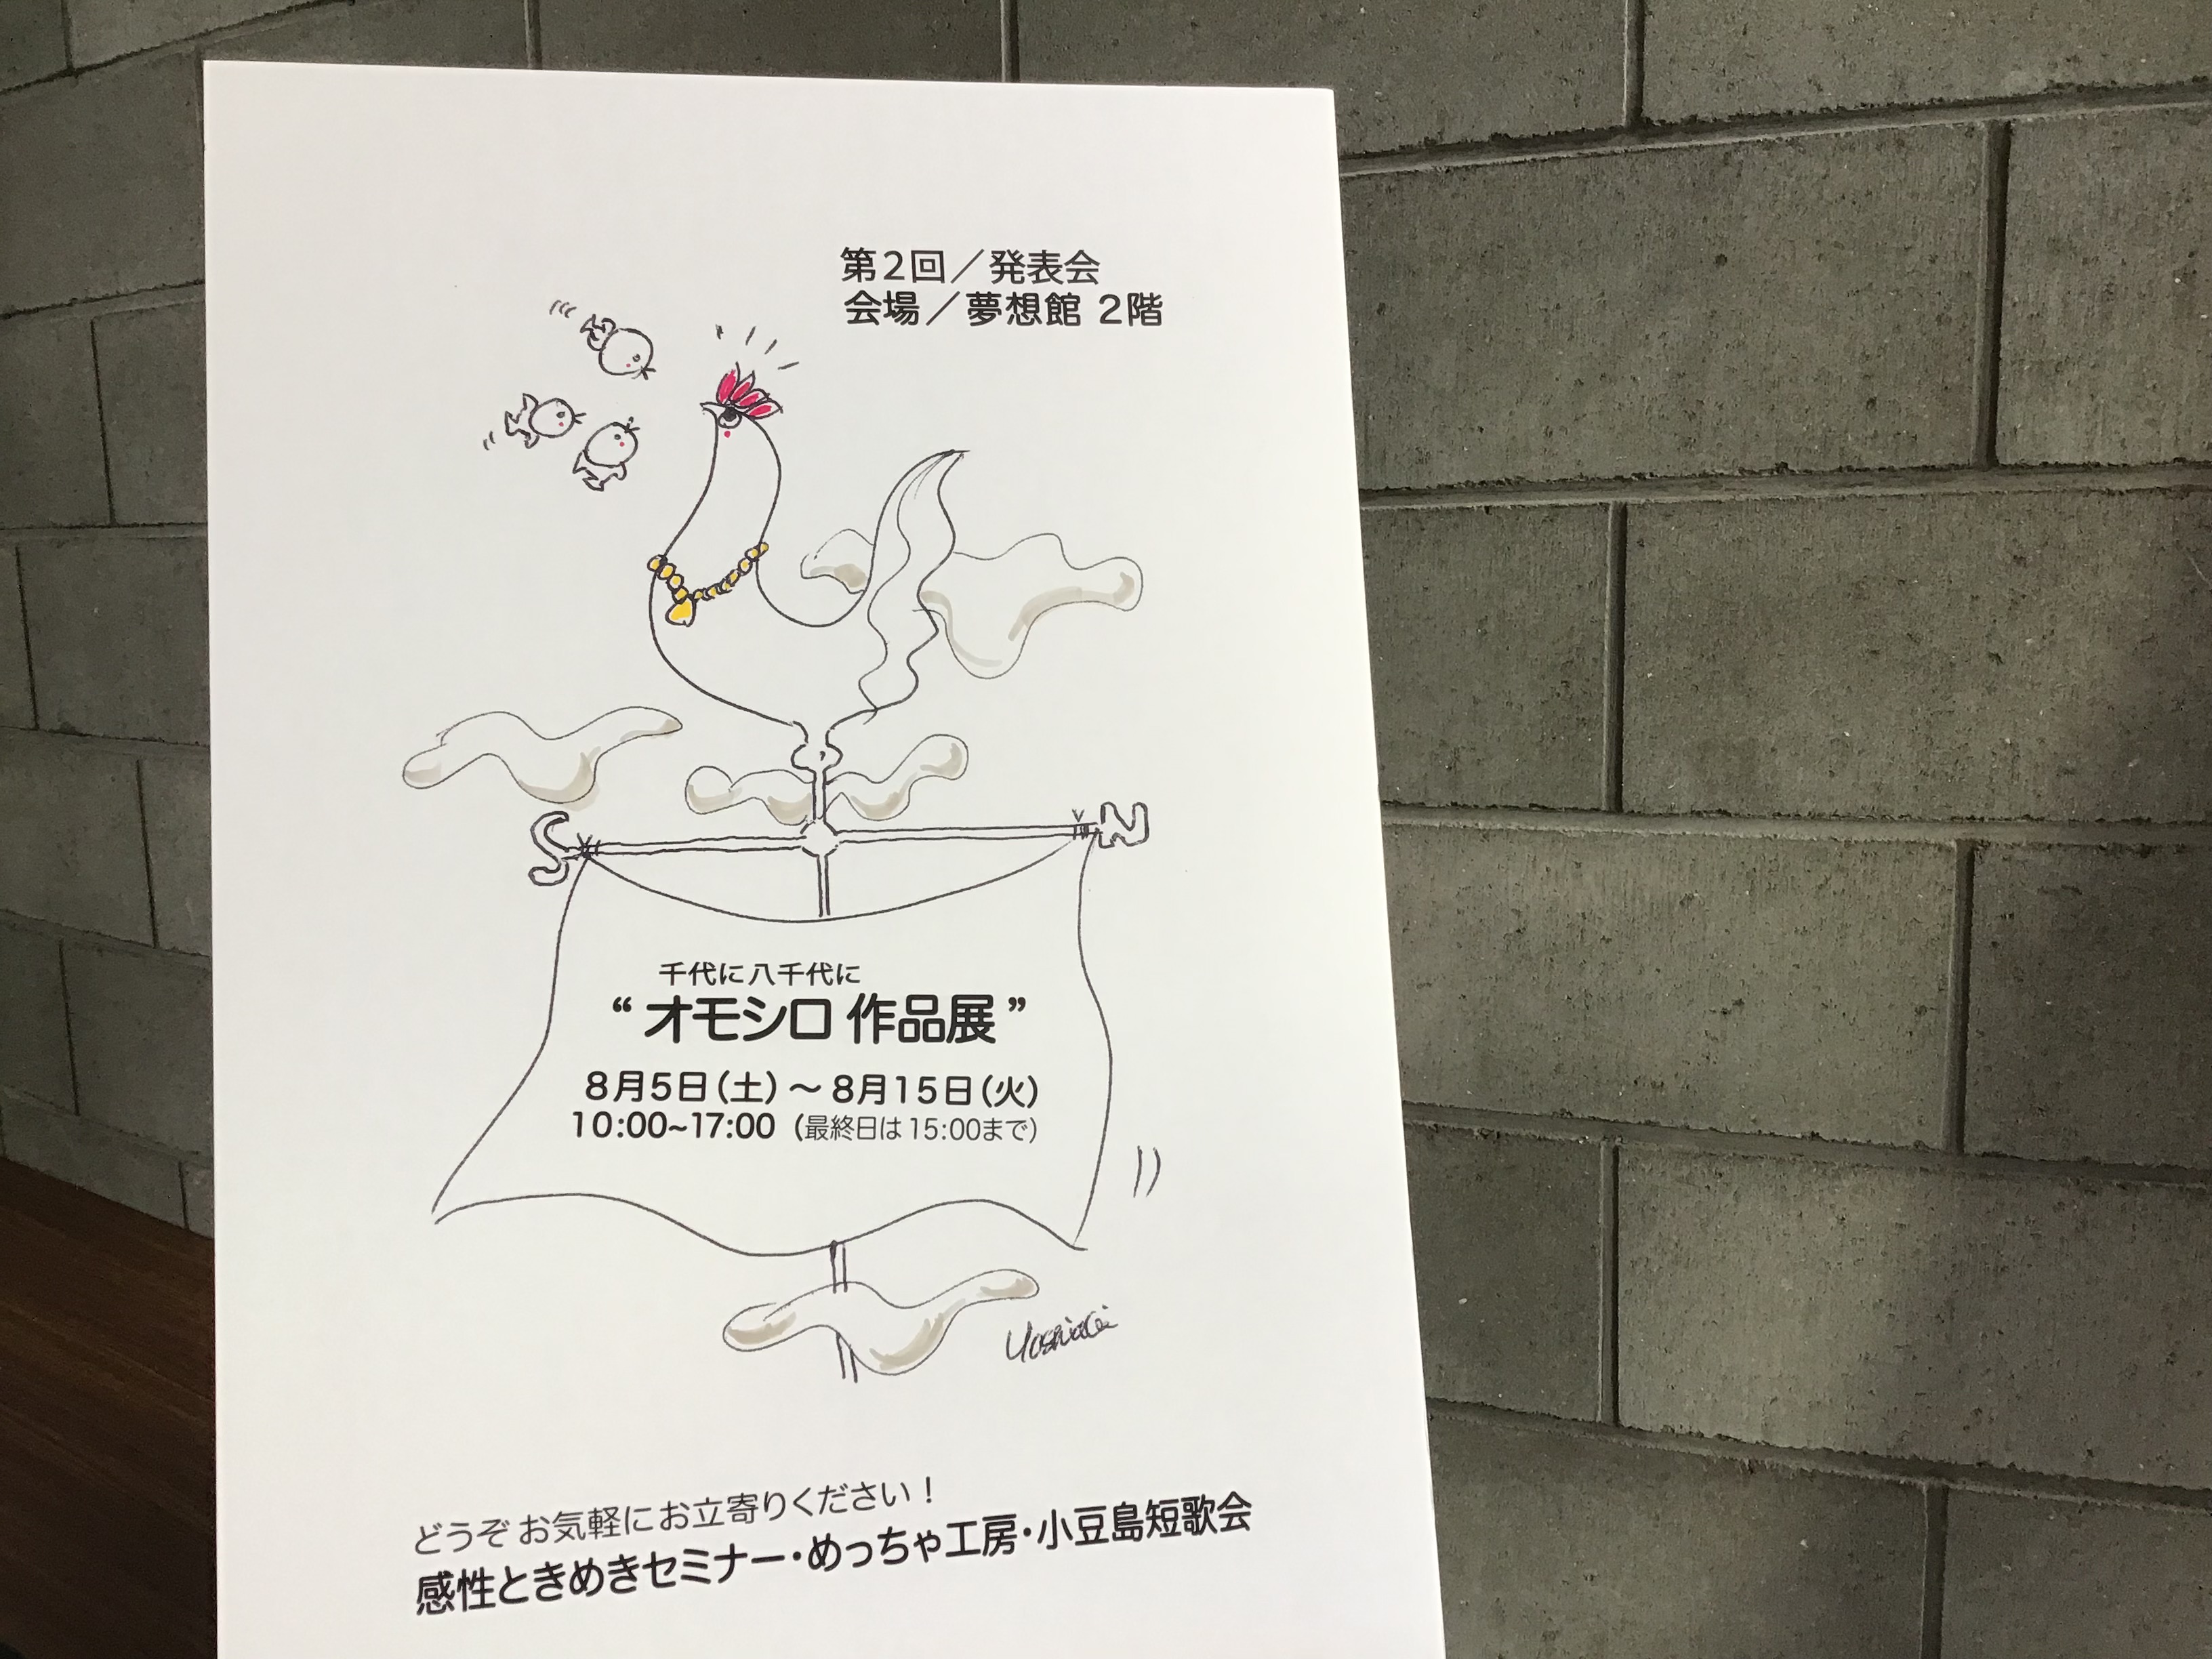 第2回／発表会
会場／夢想館 2階
S
N
千代に八千代に
“オモシロ 作品展”
8月5日（土）～8月15日（火）
10:00~17:00（最終日は15:00まで）
どうぞお気軽にお立寄りください！
感性ときめきセミナー・めっちゃ工房・小豆島短歌会